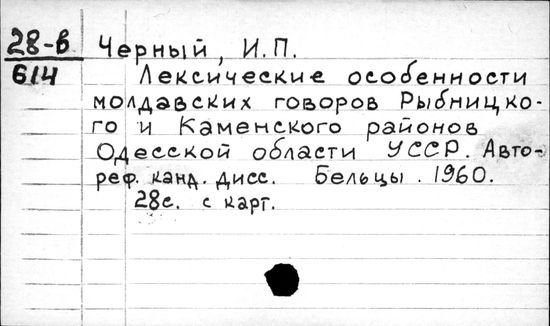 28-в Черный, И.П.
614 Лексические особенности
молдавских говоров Рыбницко-
го и Каменского районов
Одесской области УССР. Авто-
реф. канд. дисс. Бельцы. 1960.
28с. с карт.